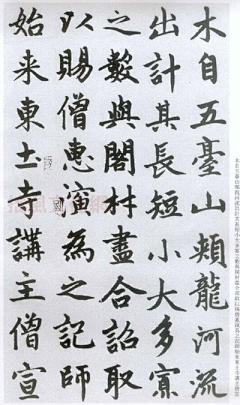 木自五臺山頰龍河流
出計其長短小大多寡
之數與閣材盡合詔取
以賜僧惠演為之記師
始来東土寺講主僧宣